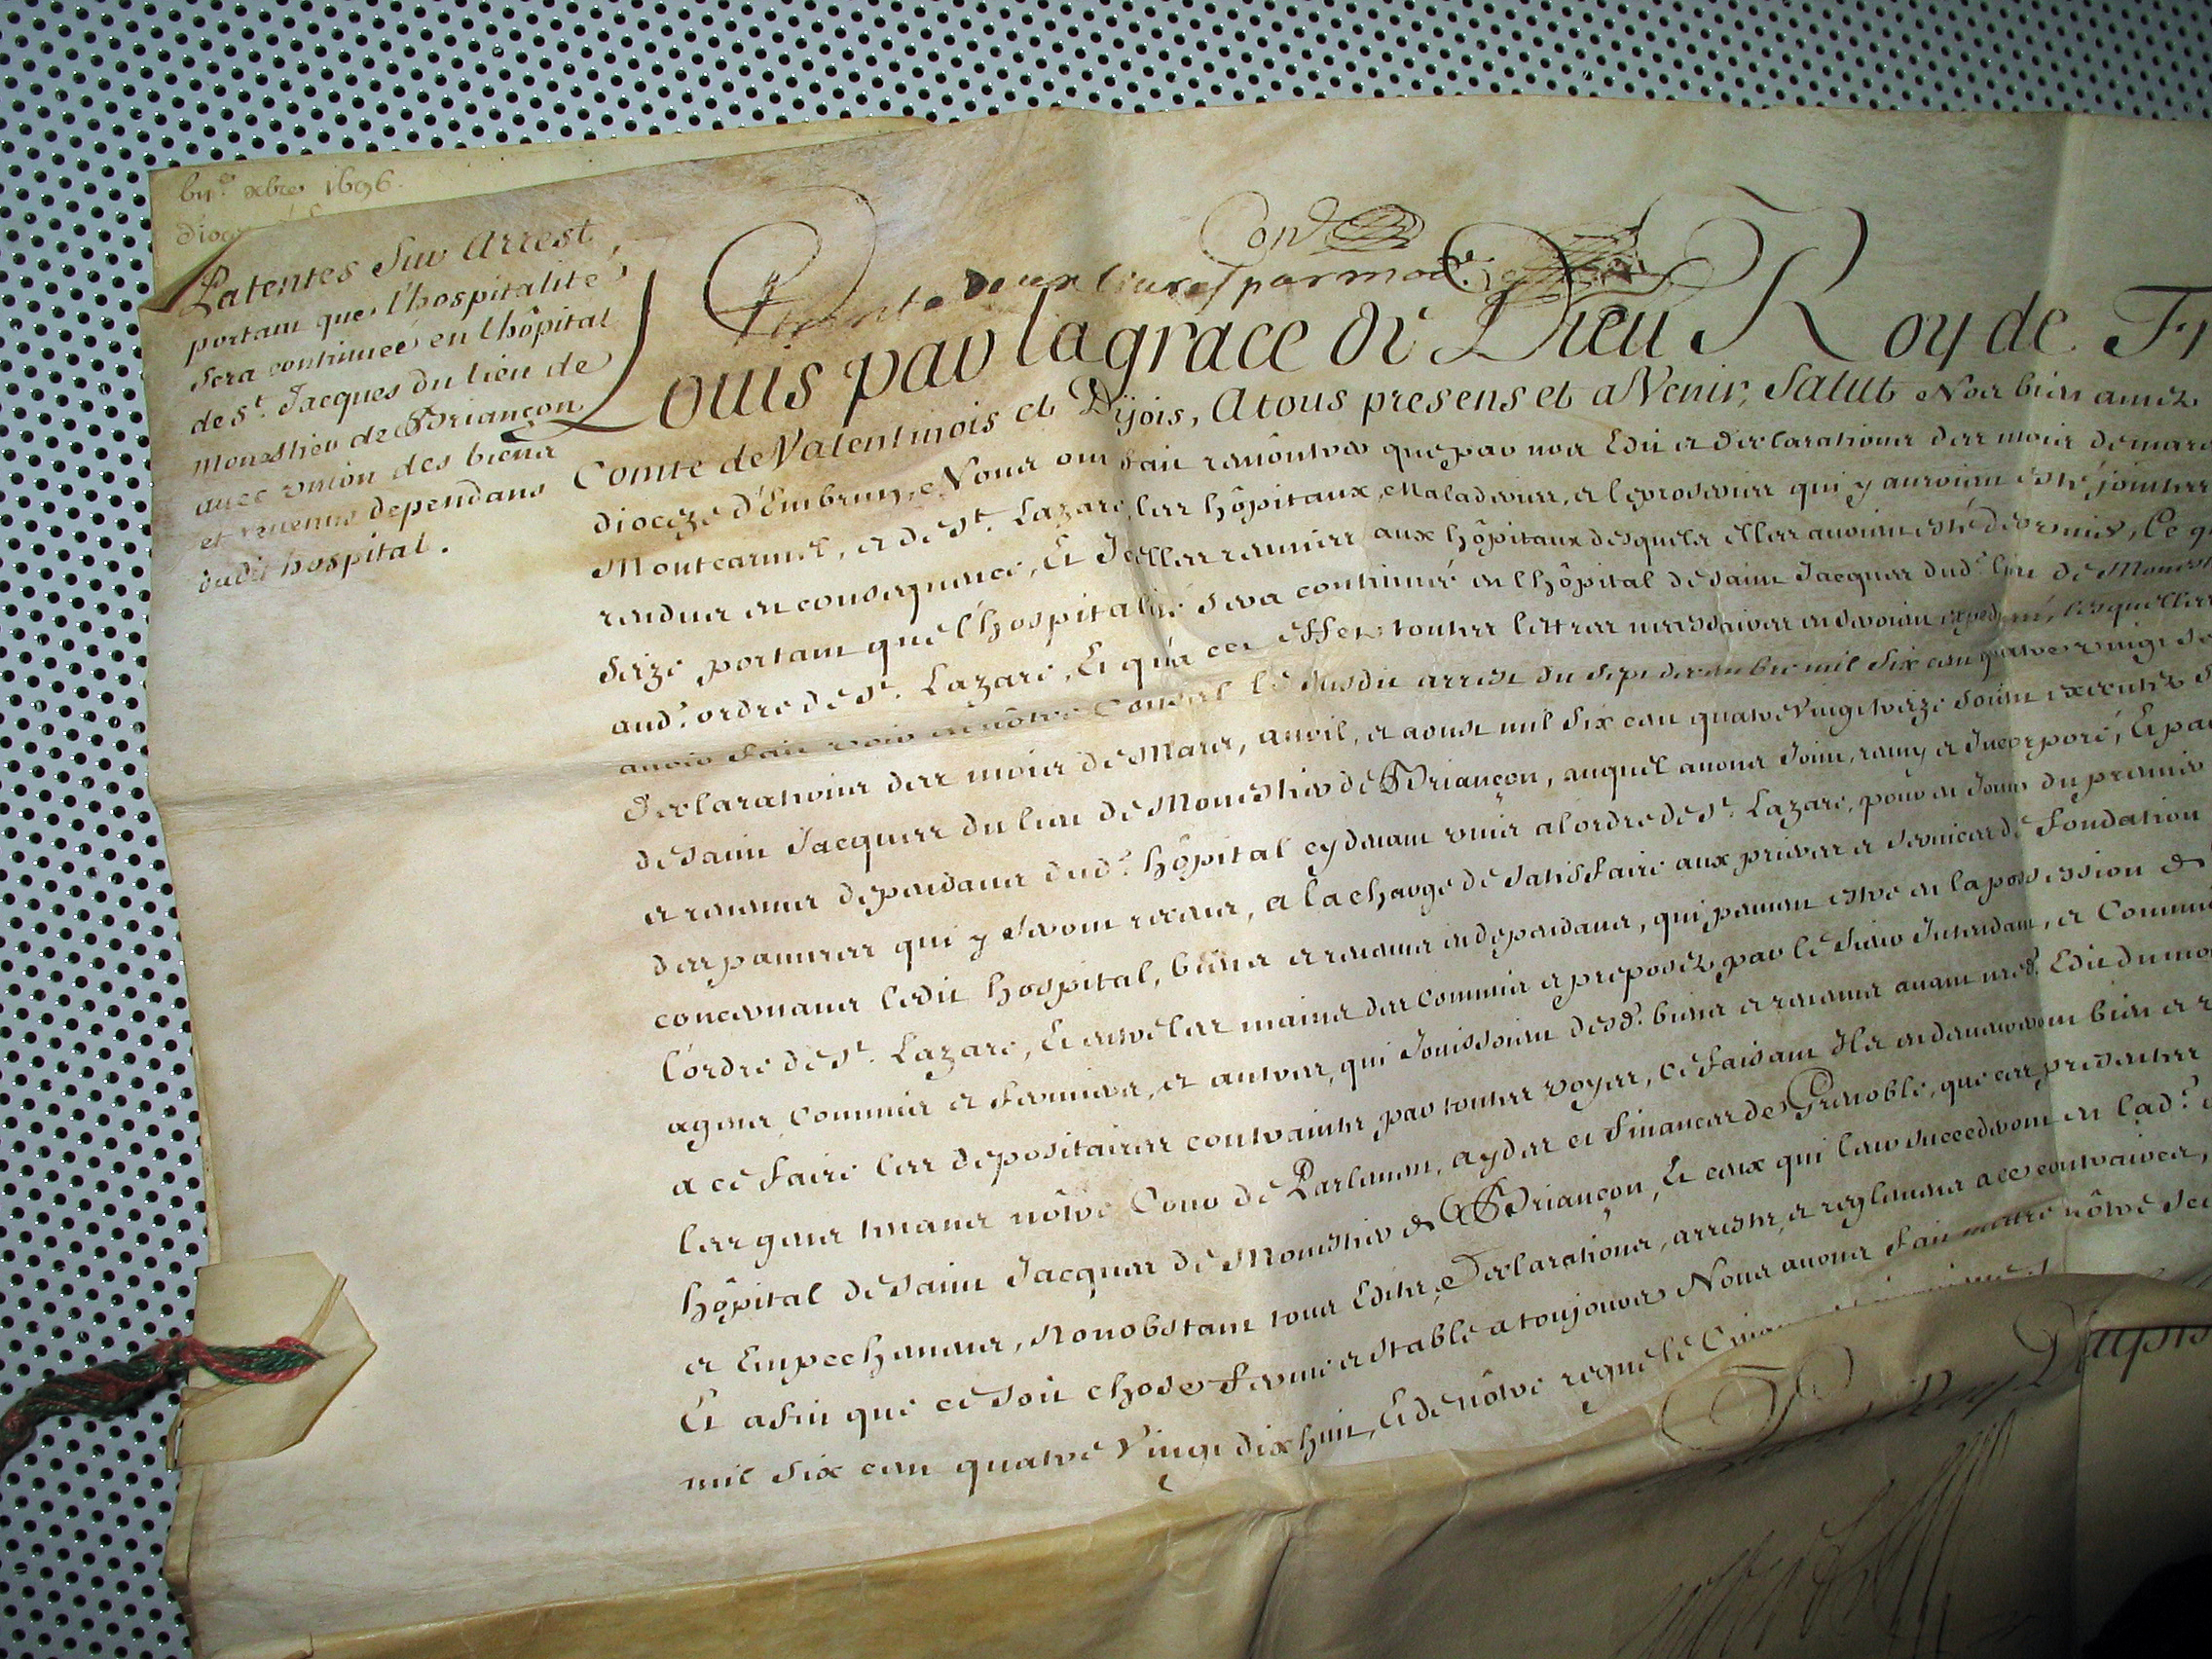 xbre 1696.
Patentes Sur Arrest
portant que l'hospitalité
sera continueé en l'hôpital
de St. Jacques du lieu de
Monestier de Briançon
auec vnion des biens
et reuenus dependans
dudit hospital.
Cond
trente deux liures par mod.
Louis par la grace de Dieu Roy de Fr
Comte de Valentinois et Dijois, A tous presens et a Venir, Salut Nos bien amez
diocèze d'Embrun, Nous ont fait remontrer que par nos Edit et declarations des mois de mars
Montcarmel, et de St. Lazare, les hôpitaux, Maladeries, et leproseries qui y auroient esté jointes
rendues en consequence, Et Icelles reünies aux hôpitaux desquels elles auoient esté des vnies, Ce q
seize portant que l'hospitalité sera continueé en l'hôpital de saint Jacques dud. lieu de Monest
aud. ordre de St. Lazare, Et qu'a cet effet toutes lettres necessaires en seroient expediées, lesquelles
auoir fait voir en nôtre Conseil le susdit arrest du sept decembre mil six cent quatre vingt se
Declarations des mois de Mars, auril, et aoust mil six cent quatre Vingt treize soient executez
de saint Jacques du lieu de Monestier de Briançon, auquel auons Joint, reuny et Incorporé, Et pa
et reuenus dependans dud. hôpital cy deuant vnis a l'ordre de St. Lazare, pour en Jouir du premier
des pauures qui y seront receus, a la charge de satisfaire aux prieres et seruices de fondation
concernans ledit hospital, biens et reuenus en dependans, qui peuuent estre en la possession de
l'ordre de St. Lazare, Et entre les mains des commis et preposez par le Sieur Intendant, et Commi
agens, Commis et fermiers, et autres, qui Jouissoient desd. biens et reuenus auant nred. Edit du mo
a ce faire les depositaires contraints par toutes voyes, ce faisant Ils en demeureront bien et
les gens tenans nôtre Cour de Parlement, aydes et finances de Grenoble, que ces presentes
hôpital de saint Jacques de Monestier de Briançon, Et ceux qui leur succederont en lad.
et Empechemens, Nonobstant tous Edits, Declarations, arrests, et reglemens a ce contraires,
Et afin que ce soit chose ferme et stable a toujours Nous auons fait mettre nôtre sce
mil six cent quatre Vingt dix huit, Et de nôtre regne le Cin